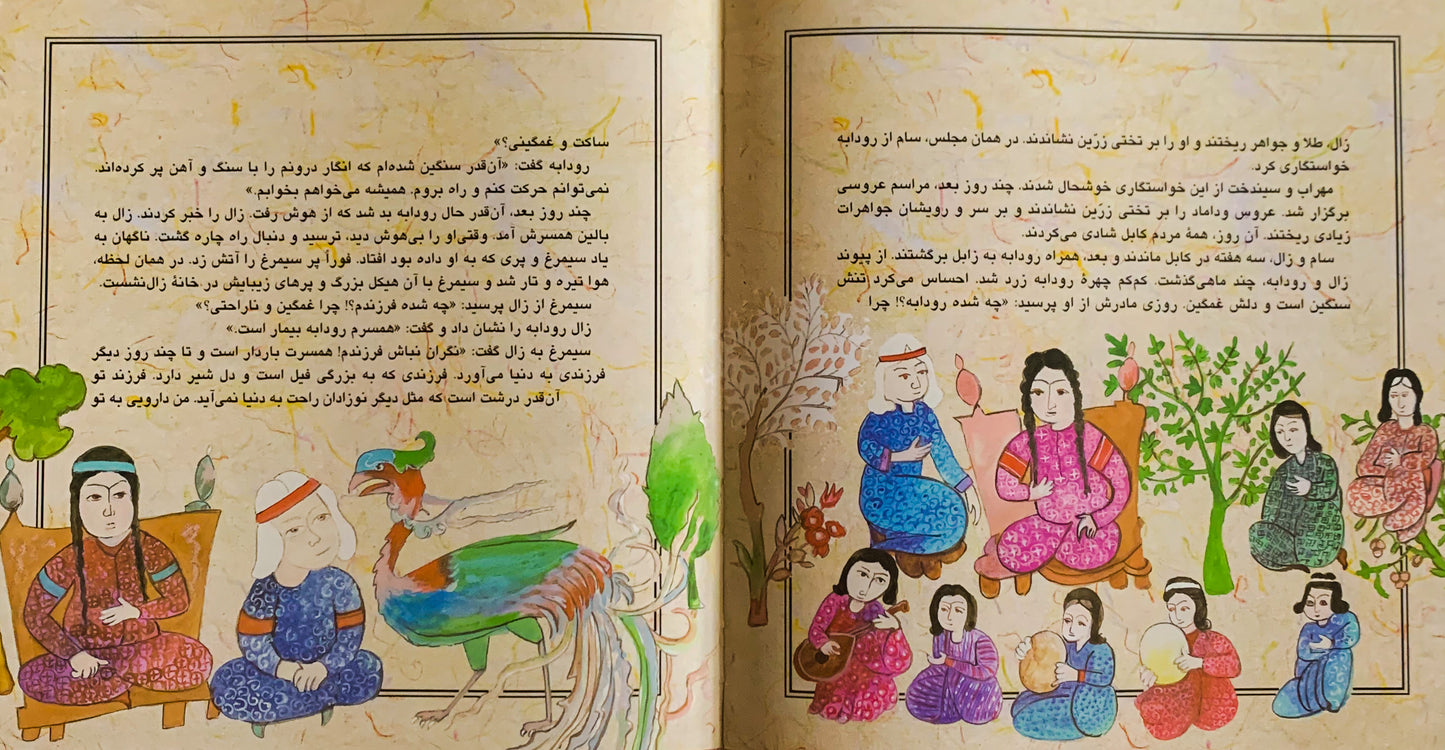 زال، طلا و جواهر ریختند و او را بر تختی زرّین نشاندند. در همان مجلس، سام از رودابه
خواستگاری کرد.
مهراب و سیندخت از این خواستگاری خوشحال شدند. چند روز بعد، مراسم عروسی
برگزار شد. عروس وداماد را بر تختی زرّین نشاندند و بر سر و رویشان جواهرات
زیادی ریختند. آن روز، همهٔ مردم کابل شادی می‌کردند.
سام و زال، سه هفته در کابل ماندند و بعد، همراه رودابه به زابل برگشتند. از پیوند
زال و رودابه، چند ماهی‌گذشت. کم‌کم چهرهٔ رودابه زرد شد. احساس می‌کرد تنش
سنگین است و دلش غمگین. روزی مادرش از او پرسید: «چه شده رودابه؟! چرا
ساکت و غمگینی؟»
رودابه گفت: «آن‌قدر سنگین شده‌ام که انگار درونم را با سنگ و آهن پر کرده‌اند.
نمی‌توانم حرکت کنم و راه بروم. همیشه می‌خواهم بخوابم.»
چند روز بعد، آن‌قدر حال رودابه بد شد که از هوش رفت. زال را خبر کردند. زال به
بالین همسرش آمد. وقتی‌او را بی‌هوش دید، ترسید و دنبال راه چاره گشت. ناگهان به
یاد سیمرغ و پری که به او داده بود افتاد. فوراً پر سیمرغ را آتش زد. در همان لحظه،
هوا تیره و تار شد و سیمرغ با آن هیکل بزرگ و پرهای زیبایش در خانهٔ زال‌نشست.
سیمرغ از زال پرسید: «چه شده فرزندم؟! چرا غمگین و ناراحتی؟»
زال رودابه را نشان داد و گفت: «همسرم رودابه بیمار است.»
سیمرغ به زال گفت: «نگران نباش فرزندم! همسرت باردار است و تا چند روز دیگر
فرزندی به دنیا می‌آورد. فرزندی که به بزرگی فیل است و دل شیر دارد. فرزند تو
آن‌قدر درشت است که مثل دیگر نوزادان راحت به دنیا نمی‌آید. من دارویی به تو